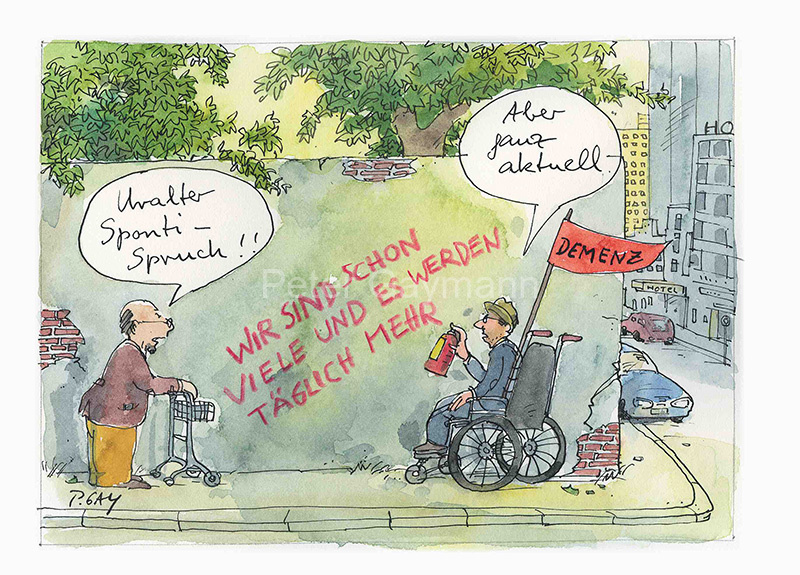 Uralter
Sponti-
Spruch!!
Aber
ganz
aktuell
WIR SIND SCHON
VIELE UND ES WERDEN
TÄGLICH MEHR
DEMENZ
HO
HOTEL
Peter Gaymann
P. GAY